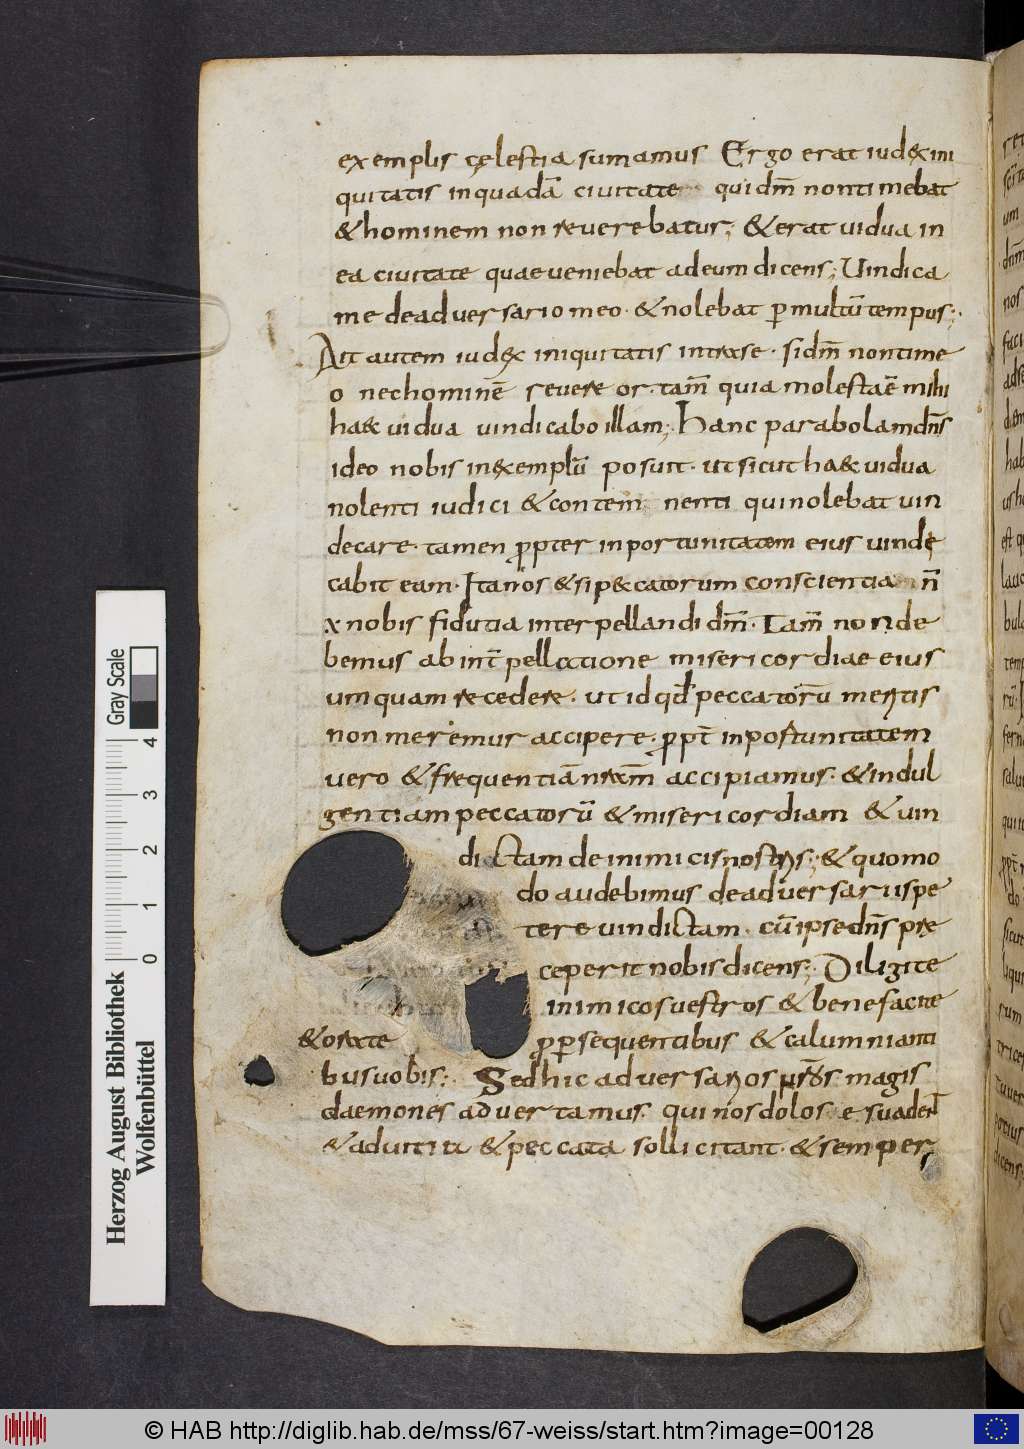 exemplis cęlestia sumamus Ergo erat iudex ini
quitatis in quadā ciuitate qui dm̄ non timebat
& hominem non reuerebatur; & erat uidua in
ea ciuitate quae ueniebat ad eum dicens; Uindica
me de aduersario meo · & nolebat p multū tempus;
Ait autem iudex iniquitatis intra se · si dm̄ non time
o nec hominē reuereor · tam̄ quia molesta ē mihi
haec uidua uindicabo illam; Hanc parabolam dn̄s
ideo nobis in exemplū posuit · ut sicut haec uidua
nolenti iudici & contemnenti qui nolebat uin
decare · tamen propter inportunitatem eius uindę
cabit eam · Ita nos & si peccatorum conscientia n̄
x nobis fidutia interpellandi dm̄ · Tam̄ non de
bemus ab int̄pellatione misericordiae eius
umquam recedere · ut id qđ peccatorū meritis
non meremur accipere · propt̄ inportunitatem
uero & frequentiā nr̄am accipiamus · & indul
gentiam peccatorū & misericordiam & uin
dictam de inimicis nostris; & quomo
do audebimus de aduersariis pe
tere uindictam · cū ipse dn̄s prae
ceperit nobis dicens; Diligite
inimicos uestros & benefacite
& orate pro persequentibus & calumnianti
bus uobis; Sed hic aduersarios nr̄os magis
daemones aduertamus · qui nos dolose suadent
& ad uitia & peccata sollicitant · & semper
Herzog August Bibliothek
Wolfenbüttel
Gray Scale
0 1 2 3 4
© HAB http://diglib.hab.de/mss/67-weiss/start.htm?image=00128